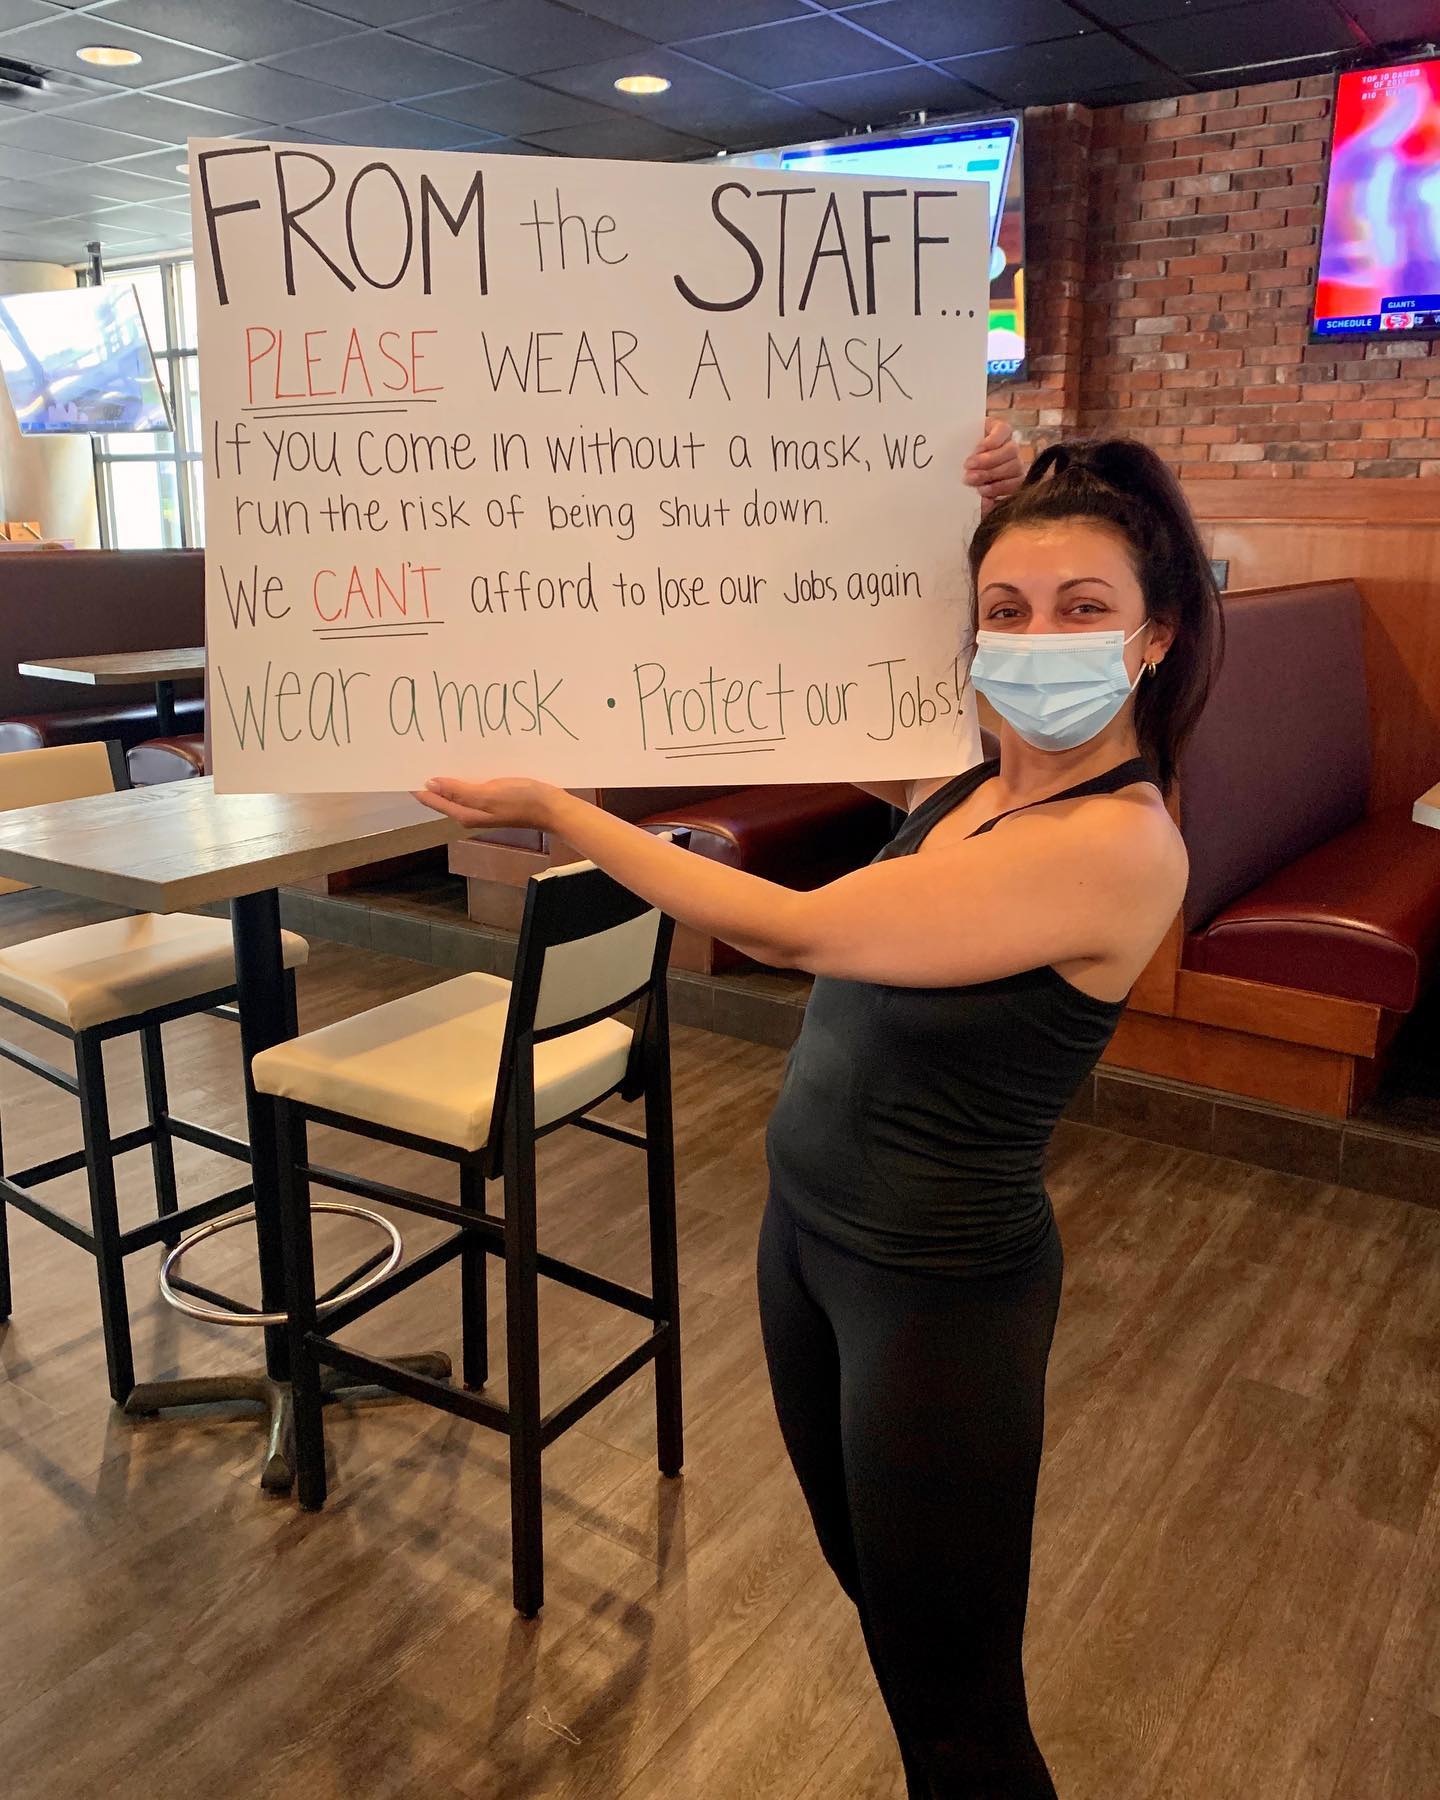 FROM the STAFF...
PLEASE WEAR A MASK
If you come in without a mask, we
run the risk of being shut down.
We CAN'T afford to lose our Jobs again
Wear a mask • Protect our Jobs!
TOP 10 GAMES
OF 2019
GIANTS
SCHEDULE
GOLF